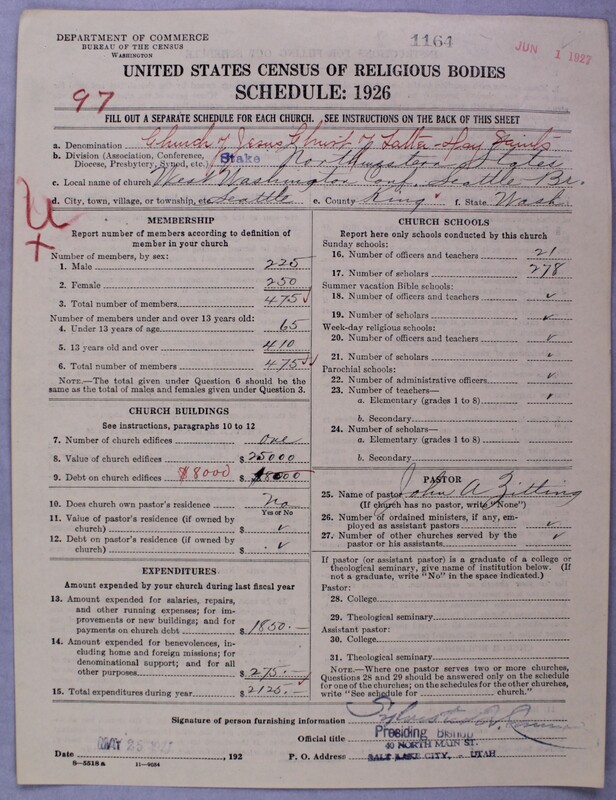 DEPARTMENT OF COMMERCE
BUREAU OF THE CENSUS
WASHINGTON
1164
JUN 1 1927
UNITED STATES CENSUS OF RELIGIOUS BODIES
SCHEDULE: 1926
97
FILL OUT A SEPARATE SCHEDULE FOR EACH CHURCH. SEE INSTRUCTIONS ON THE BACK OF THIS SHEET
a. Denomination Church of Jesus Christ of Latter-day Saints
b. Division (Association, Conference, Diocese, Presbytery, Synod, etc.) Stake Northwestern States
c. Local name of church West Washington Con. Seattle Br.
d. City, town, village, or township, etc Seattle e. County King f. State Wash
MEMBERSHIP
Report number of members according to definition of member in your church
Number of members, by sex:
1. Male 225
2. Female 250
3. Total number of members 475
Number of members under and over 13 years old:
4. Under 13 years of age 65
5. 13 years old and over 410
6. Total number of members 475
NOTE.—The total given under Question 6 should be the same as the total of males and females given under Question 3.
CHURCH BUILDINGS
See instructions, paragraphs 10 to 12
7. Number of church edifices one
8. Value of church edifices $ 25000
9. Debt on church edifices $8000 $ 8000
10. Does church own pastor's residence No
Yes or No
11. Value of pastor's residence (if owned by church) $ ✓
12. Debt on pastor's residence (if owned by church) $ ✓
EXPENDITURES
Amount expended by your church during last fiscal year
13. Amount expended for salaries, repairs, and other running expenses; for improvements or new buildings; and for payments on church debt $ 1850.—
14. Amount expended for benevolences, including home and foreign missions; for denominational support; and for all other purposes $ 275.—
15. Total expenditures during year $ 2125.—
CHURCH SCHOOLS
Report here only schools conducted by this church
Sunday schools:
16. Number of officers and teachers 21
17. Number of scholars 278
Summer vacation Bible schools:
18. Number of officers and teachers ✓
19. Number of scholars ✓
Week-day religious schools:
20. Number of officers and teachers ✓
21. Number of scholars ✓
Parochial schools:
22. Number of administrative officers ✓
23. Number of teachers—
a. Elementary (grades 1 to 8)
b. Secondary
24. Number of scholars—
a. Elementary (grades 1 to 8)
b. Secondary
PASTOR
25. Name of pastor John A Zitting
(If church has no pastor, write "None")
26. Number of ordained ministers, if any, employed as assistant pastors ✓
27. Number of other churches served by the pastor or his assistants ✓
If pastor (or assistant pastor) is a graduate of a college or theological seminary, give name of institution below. (If not a graduate, write "No" in the space indicated.)
Pastor:
28. College
29. Theological seminary
Assistant pastor:
30. College
31. Theological seminary
NOTE.—Where one pastor serves two or more churches, Questions 28 and 29 should be answered only on the schedule for one of the churches; on the schedules for the other churches, write "See schedule for church."
Signature of person furnishing information
Official title Presiding Bishop
40 NORTH MAIN ST.
Date MAY 25 1927, 192 P. O. Address SALT LAKE CITY, UTAH
8—5518 a 11—9034